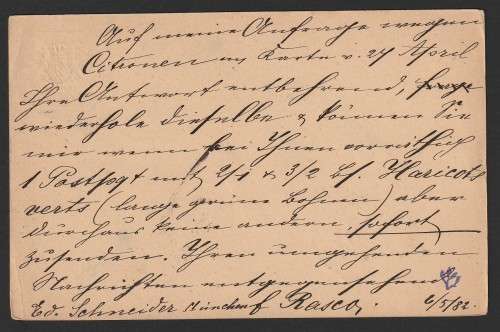 Auf meine Anfrage wegen
Citronen Karte v. 27 April
Ihre Antwort entbehrend,
wiederhole dieselbe & können Sie
mir wenn bei Ihnen vorräthig
1 Postpqt mit 2/1 & 3/2 Haricots
verts (lange grüne Bohnen) aber
durchaus keine andern sofort
zusenden. Ihren umgehenden
Nachrichten entgegensehend
Ed. Schneider München
6/5/82.